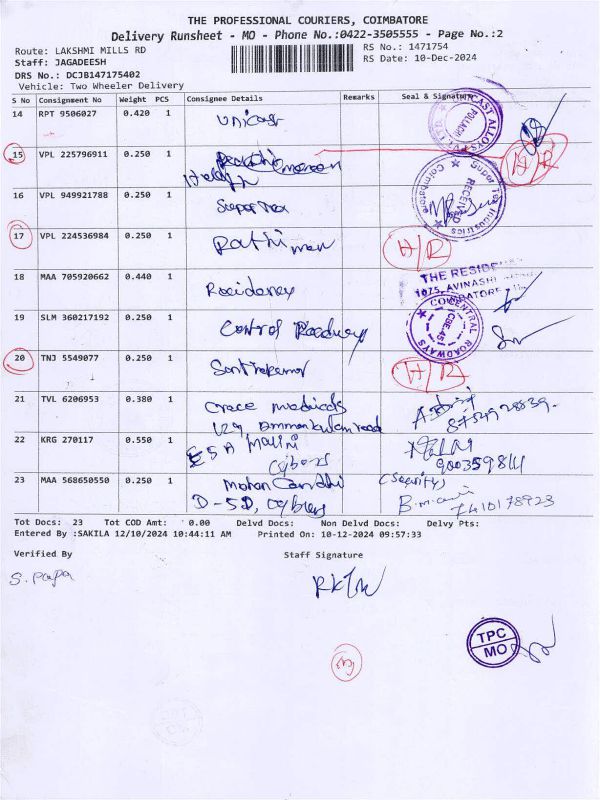 THE PROFESSIONAL COURIERS, COIMBATORE
Delivery Runsheet - MO - Phone No.:0422-3505555 - Page No.:2
Route: LAKSHMI MILLS RD
RS No.: 1471754
Staff: JAGADEESH
RS Date: 10-Dec-2024
DRS No.: DCJB147175402
Vehicle: Two Wheeler Delivery
S No Consignment No Weight PCS Consignee Details Remarks Seal & Signature
14 RPT 9506027 0.420 1 Unicast
15 VPL 225796911 0.250 1 H/R
16 VPL 949921788 0.250 1
Super Tex Industries
RECEIVED
Coimbatore
17 VPL 224536984 0.250 1 Rathi H/R
18 MAA 705920662 0.440 1 Residency
THE RESIDE
1075, AVINASHI
19 SLM 360217192 0.250 1 Central Roadways
CENTRAL ROADWAYS
CBE-451
20 TNJ 5549077 0.250 1 Santhakumar H/R
21 TVL 6206953 0.380 1 Grace medicals
129 Ammankulam road
22 KRG 270117 0.550 1 ESA Malini
23 MAA 568650550 0.250 1 Mohan Gandhi (Security)
D-5D, 7410178923
Tot Docs: 23 Tot COD Amt: 0.00 Delvd Docs: Non Delvd Docs: Delvy Pts:
Entered By :SAKILA 12/10/2024 10:44:11 AM Printed On: 10-12-2024 09:57:33
Verified By Staff Signature
S. Papa
TPC
MO